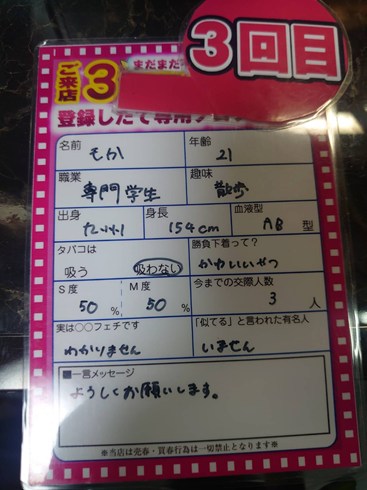 3回目
ご来店
3
まだまだ
登録したて専用プロ
名前 もか
年齢 21
職業 専門学生
趣味 散歩
出身 九州
身長 154cm
血液型 AB型
タバコは 吸う 吸わない
勝負下着って? かわいいやつ
S度 50%
M度 50%
今までの交際人数 3人
実は○○フェチです わかりません
「似てる」と言われた有名人 いません
■一言メッセージ
よろしくお願いします。
※当店は売春・買春行為は一切禁止となります※